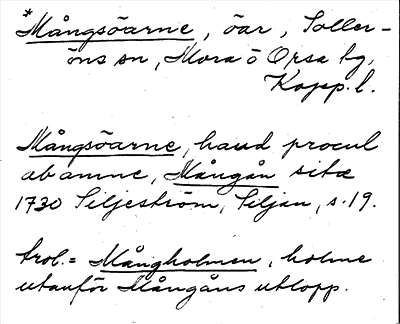 *Mångsöarne, öar, Soller-
öns sn, Mora o Orsa tg,
Kopp. l.
Mångsöarne, haud procul
ab amne, Mångån sitæ
1730 Siljeström, Siljan, s. 19.
trol. = Mångholmen, holme
utanför Mångåns utlopp.